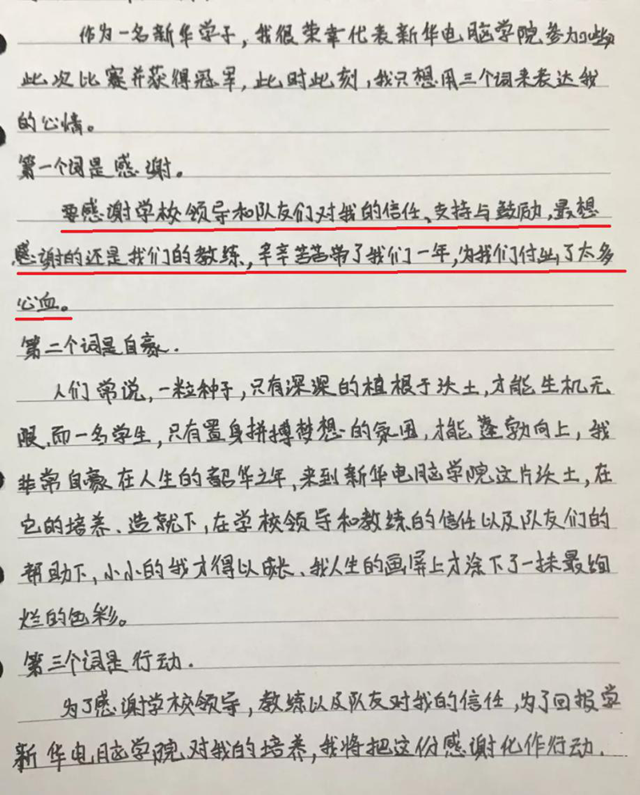 作为一名新华学子，我很荣幸代表新华电脑学院参加
此次比赛并获得冠军，此时此刻，我只想用三个词来表达我
的心情。
第一个词是感谢。
要感谢学校领导和队友们对我的信任、支持与鼓励，最想
感谢的还是我们的教练，辛辛苦苦带了我们一年，为我们付出了太多
心血。
第二个词是自豪.
人们常说，一粒种子，只有深深的植根于沃土，才能生机无
限.而一名学生，只有置身拼搏梦想的氛围，才能蓬勃向上，我
非常自豪在人生的韶华之年，来到新华电脑学院这片沃土，在
它的培养、造就下，在学校领导和教练的信任以及队友们的
帮助下，小小的我才得以成长、我人生的画屏上才涂下了一抹最绚
烂的色彩。
第三个词是行动.
为了感谢学校领导，教练以及队友对我的信任，为了回报学
新华电脑学院对我的培养，我将把这份感谢化作行动.